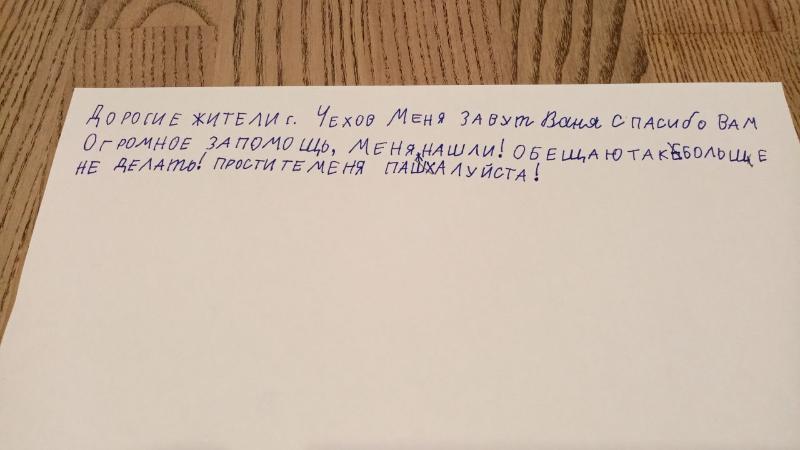 Дорогие жители г. Чехов Меня завут Ваня спасибо вам
Огромное запомощь, меня нашли! обещаю так больше
не делать! простите меня пашхалуйста!